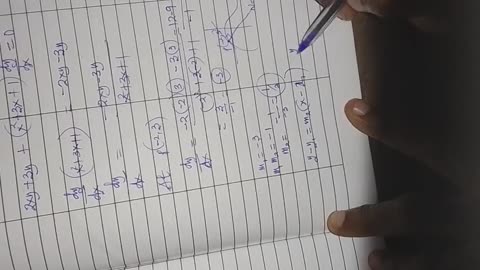 2xy + 3y + (x² + 3x + 1) dy/dx = 0
dy/dx (x² + 3x + 1) = -2xy - 3y
dy/dx = -2xy - 3y / x² + 3x + 1
At P(-2, 3)
dy/dx = -2(-2)(3) - 3(3) / (-2)² + 3(-2) + 1 = 12 - 9 / -1
= 3/-1 = (-3)
m₁ = -3
m₁m₂ = -1
m₂ = -1/-3
y - y₁ = m₂(x - x₁)